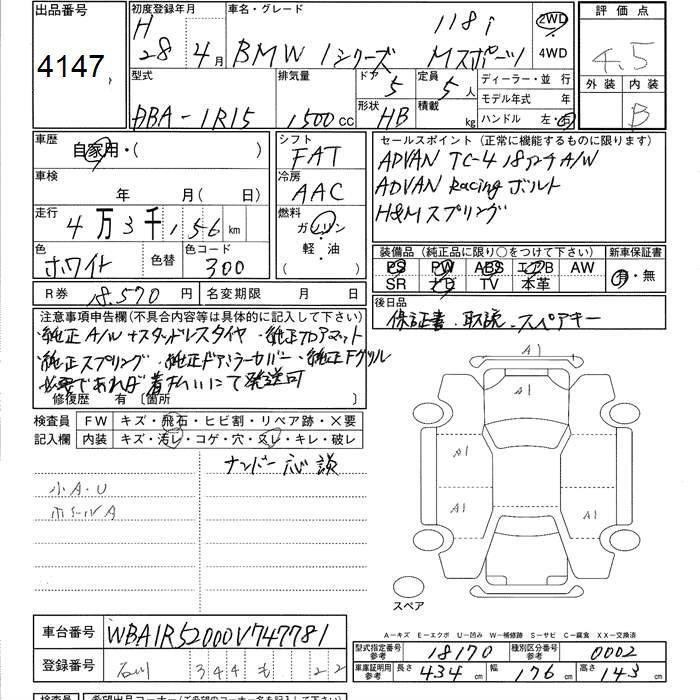 出品番号
4147
初度登録年月
H
28 4月
車名・グレード
BMW 1シリーズ 118i Mスポーツ
2WD
4WD
評価点
4.5
外装 内装
B
型式
DBA-1R15
排気量
1500cc
ドア
5
形状
HB
定員
5人
積載
kg
ディーラー・並行
モデル年式 年
ハンドル 左・右
車歴
自家用・( )
車検
年 月( 日)
走行
4万3千156km
色
ホワイト
色替
色コード
300
シフト
FAT
冷房
AAC
燃料
ガソリン
軽・油
( )
セールスポイント(正常に機能するものに限ります)
ADVAN TC-4 18インチA/W
ADVAN Racing ボルト
H&Mスプリング
装備品(純正品に限り○をつけて下さい)
PS PW ABS エアB AW
SR ナビ TV 本革
新車保証書
有・無
R券 18,570円
名変期限 月 日
後日品
保証書、取説、スペアキー
注意事項申告欄(不具合内容等は具体的に記入して下さい)
・純正A/W+スタッドレスタイヤ ・純正フロアマット
・純正スプリング ・純正ドアミラーカバー ・純正Fグリル
必要であれば着払いにて発送可
修復歴 有 〔箇所 〕
検査員
記入欄
FW キズ・飛石・ヒビ割・リペア跡・×要
内装 キズ・汚レ・コゲ・穴・スレ・キレ・破レ
ナンバー応談
小A・U
ホイールA
A1
A1
A1
A1
A1
スペア
A―キズ E―エクボ U―凹み W―補修跡 S―サビ C―腐食 XX―交換済
車台番号 WBA1R52000V747781
登録番号 石川 344 も 22
型式指定番号
参考
18170
種別区分番号
参考
0002
車庫証明用
参考
長さ 434cm 幅 176cm 高さ 143cm
検査員 希望出品コーナー